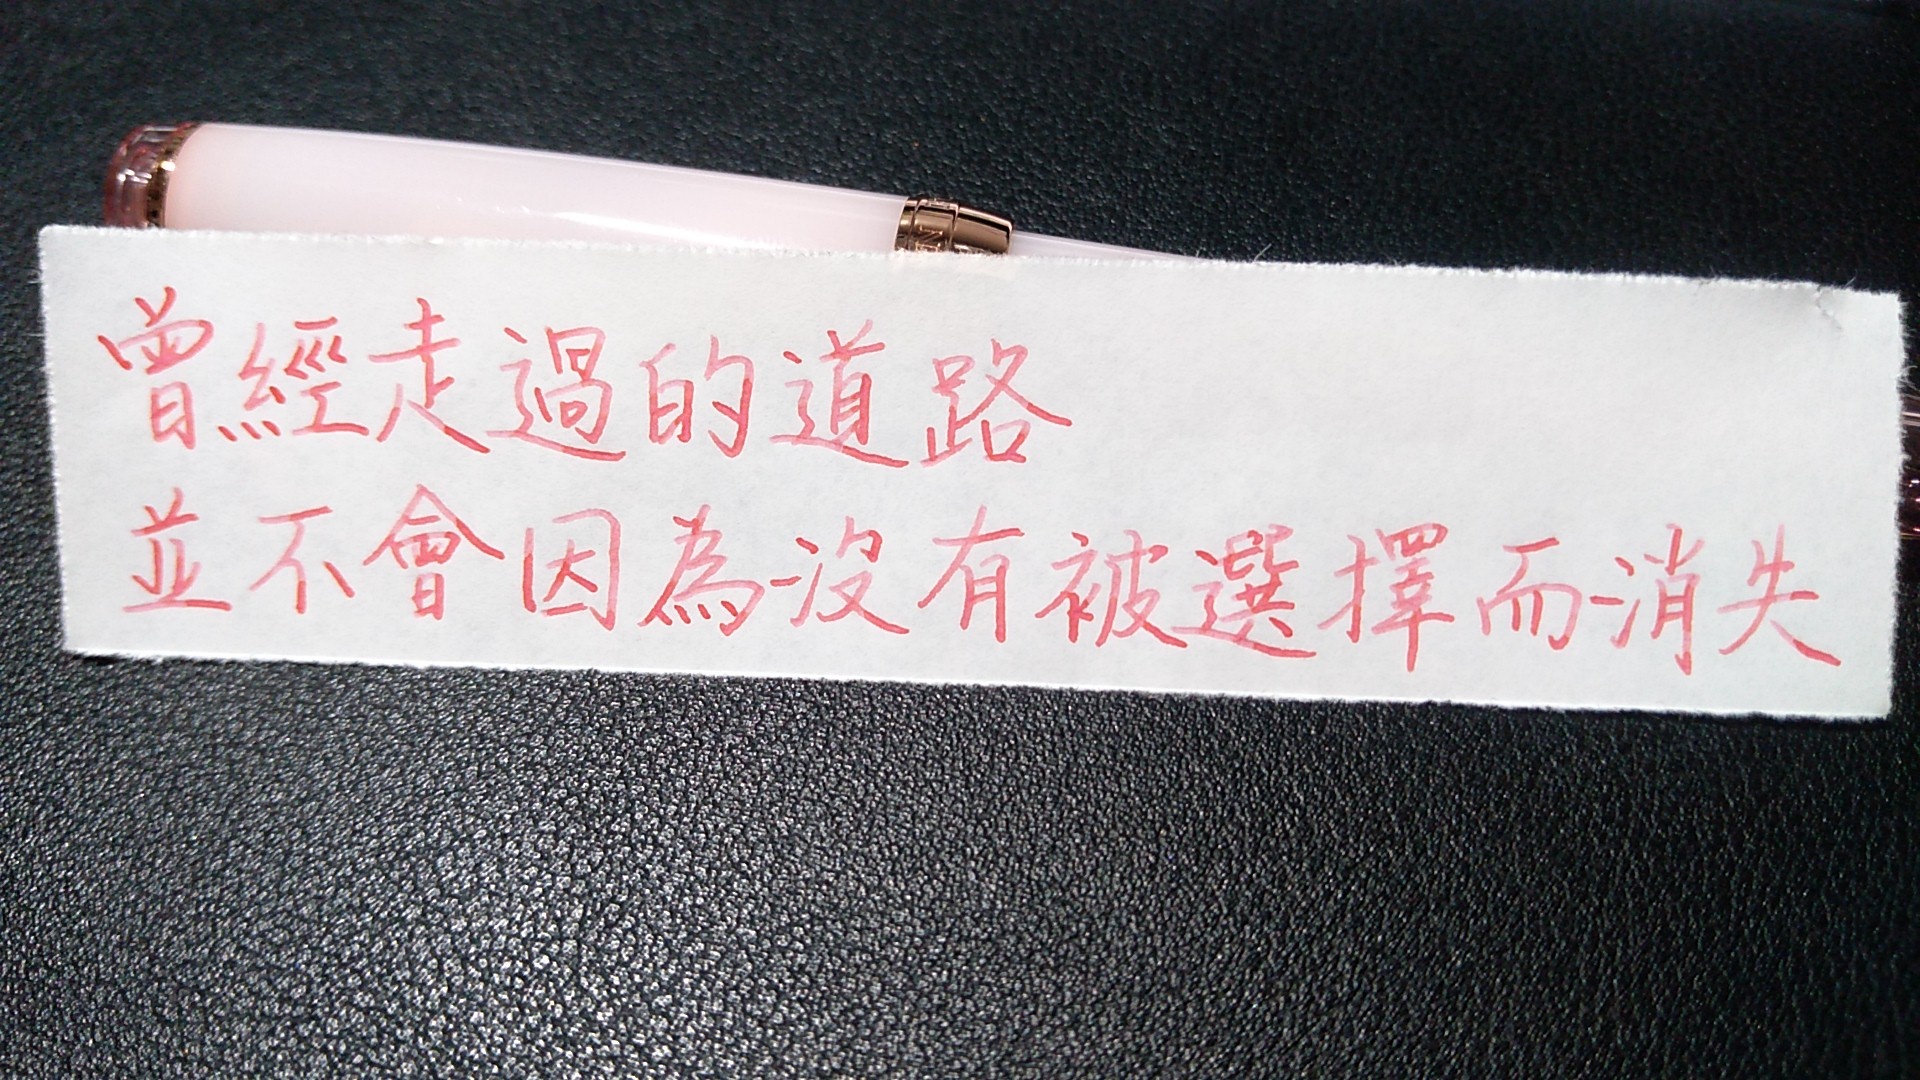 曾經走過的道路
並不會因為沒有被選擇而消失